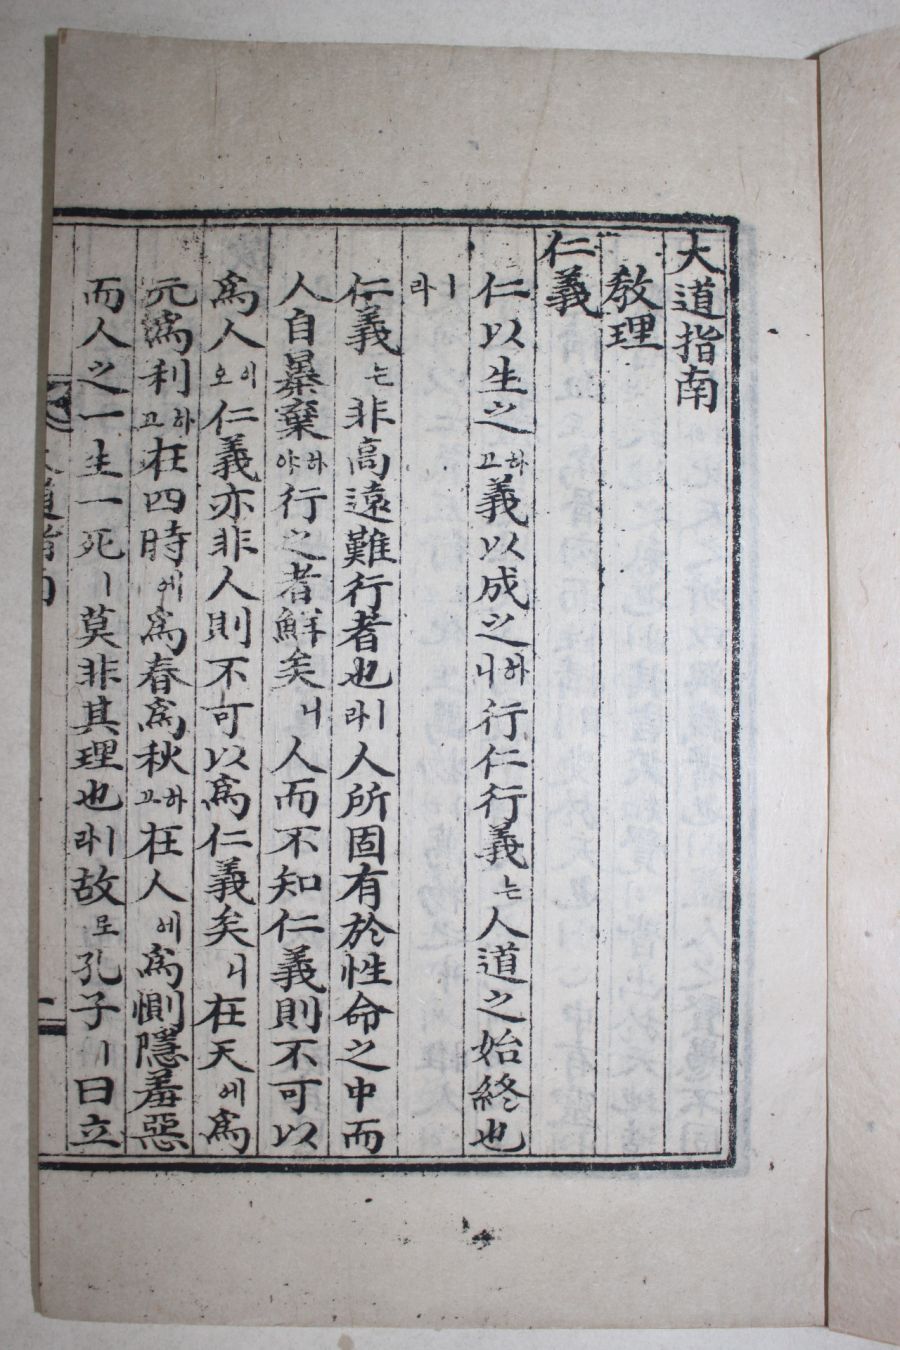 大道指南
敎理
仁義
仁以生之하고義以成之하니行仁行義는人道之始終也
ㅣ라
仁義는非高遠難行者也ㅣ라人所固有於性命之中而
人自暴棄하야行之者鮮矣니人而不知仁義則不可以
爲人이오仁義亦非人則不可以爲仁義矣니在天에爲
元爲利하고在四時에爲春爲秋하고在人에爲惻隱羞惡
而人之一生一死ㅣ莫非其理也ㅣ라故로孔子ㅣ曰立